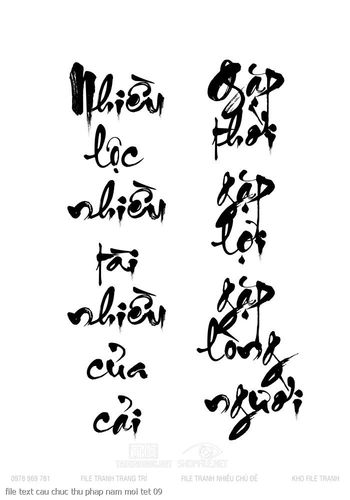 Nhiều
lộc
nhiều
tài
nhiều
của
cải
Gặp
thời
gặp
lợi
gặp
lòng
người
SHOPFILE.NET
FILE TRANH TRANG TRÍ FILE TRANH NHIỀU CHỦ ĐỀ KHO FILE TRANH
file text cau chuc thu phap nam moi tet 09